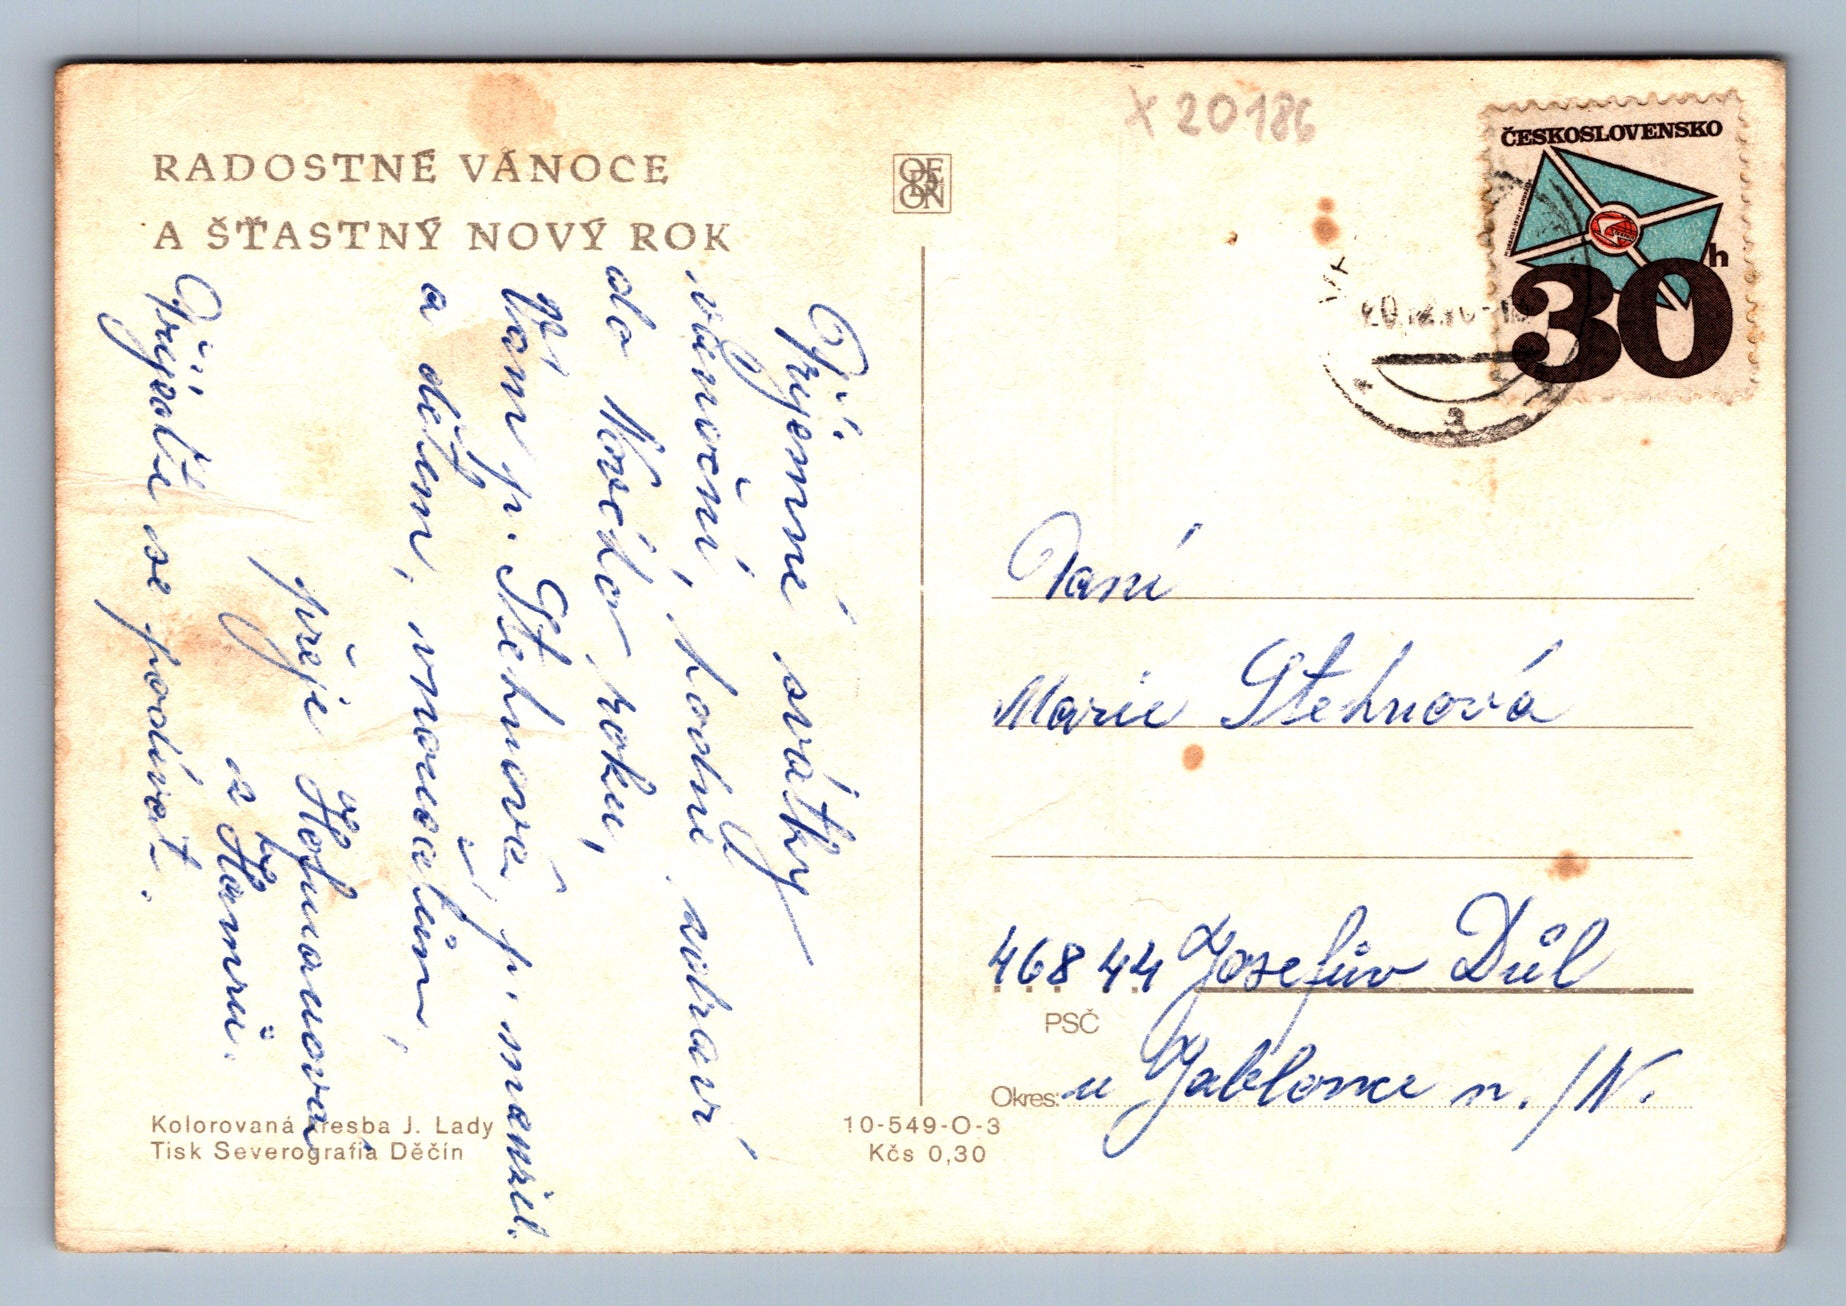 RADOSTNÉ VÁNOCE
A ŠŤASTNÝ NOVÝ ROK
Příjemné svátky
vánoční, hodně zdraví
do Nového roku,
Vám p. Stehnová, p. manžel.
a dětem, vnoučatům,
přeje Hofmanová
z Hamrů.
Přijďte se podívat.
Kolorovaná kresba J. Lady
Tisk Severografia Děčín
10-549-O-3
Kčs 0,30
ODEON
X 20186
ČESKOSLOVENSKO
30h
Paní
Marie Stehnová
468 44 Josefův Důl
PSČ
Okres: u Jablonce n./N.